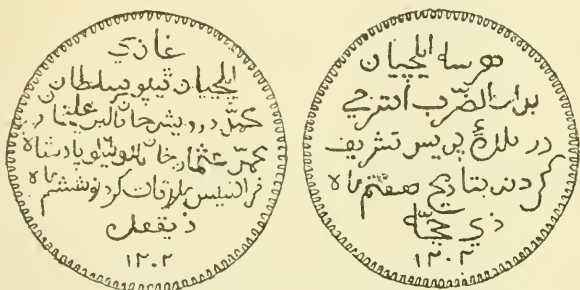 غازي
ايلچيان ٹيپو سلطان
محمّد درويش خان اكبر علي خان
محمّد عثمان خان پادشاه
فرانسيس ملاقات كردند ششم ماه
ذيقعده
۱۲۰۲
هر سه ايلچيان
بدار الضّرب
در بلدهٔ پريس تشريف
كردند بتاريخ هفتم ماه
ذي حجّه
۱۲۰۲